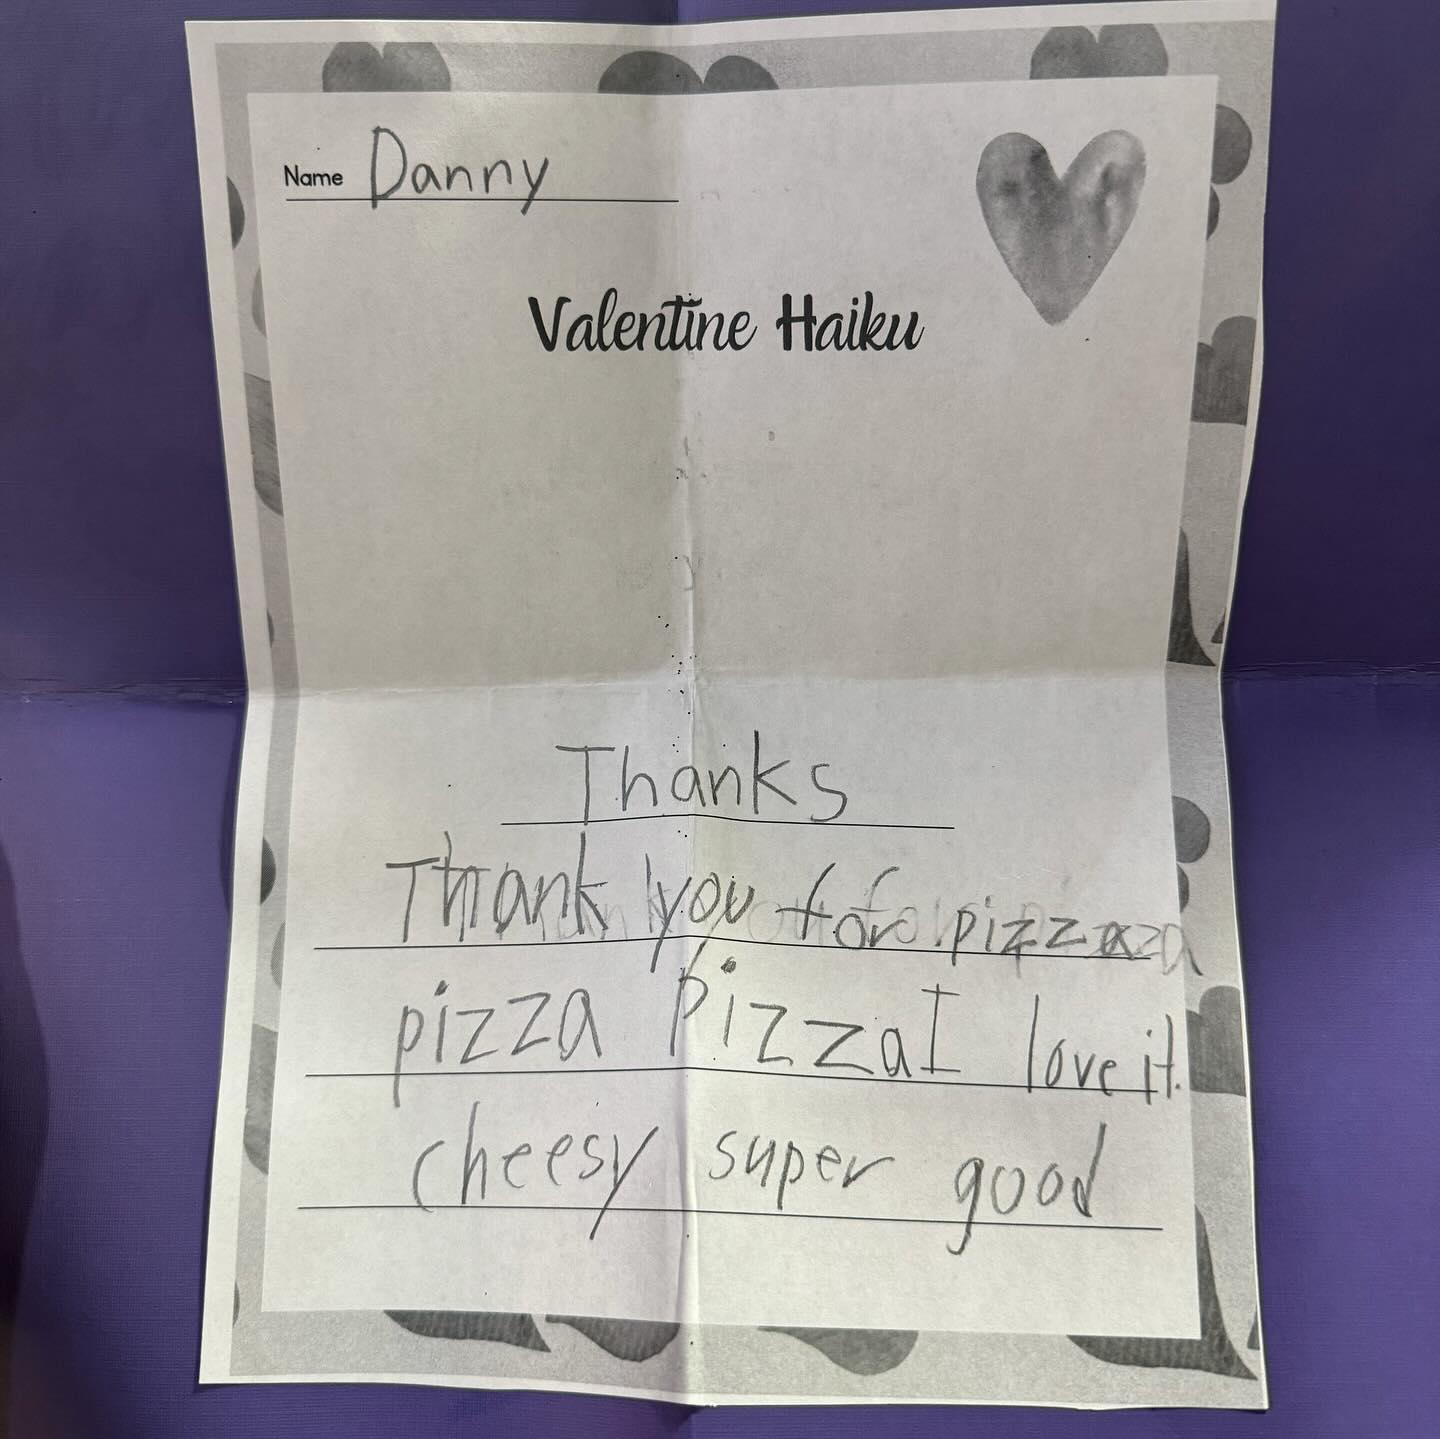 Name Danny
Valentine Haiku
Thanks
Thank you for pizza
pizza PizzaI love it.
cheesy super good